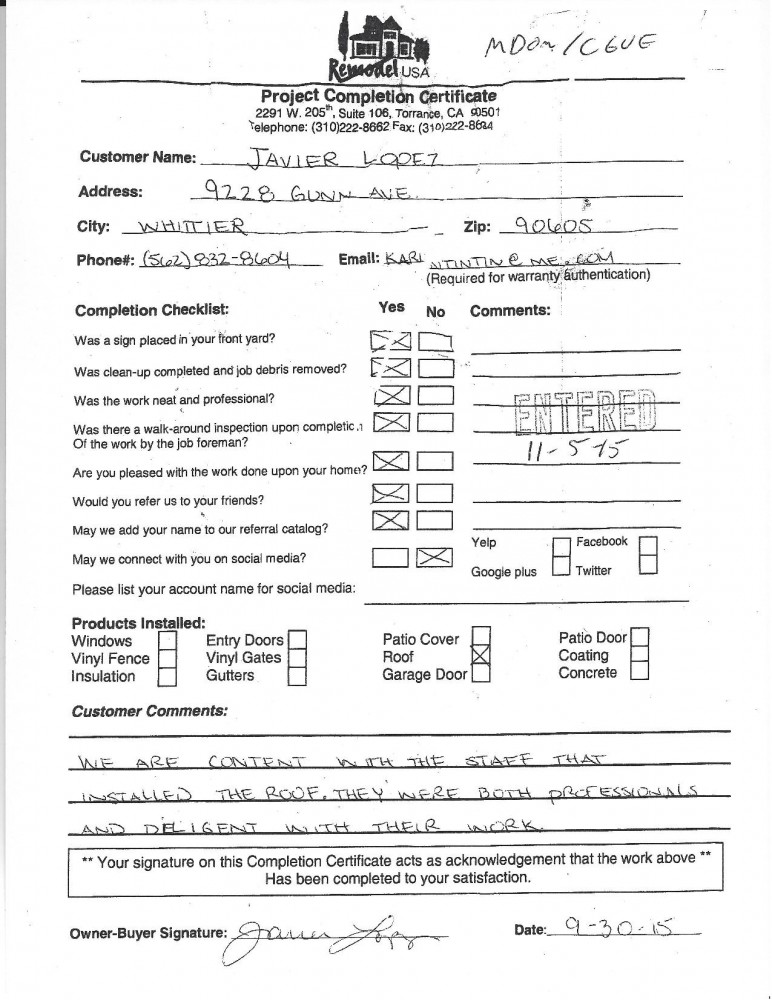 MDon/CGUE
Remodel USA
Project Completion Certificate
2291 W. 205th, Suite 106, Torrance, CA 90501
Telephone: (310)222-8662 Fax: (310)222-8684
Customer Name: JAVIER LOPEZ
Address: 9228 GUNN AVE.
City: WHITTIER Zip: 90605
Phone#: (562) 832-8604 Email: KARI NTINTIN@ME.COM
(Required for warranty authentication)
Completion Checklist: Yes No Comments:
Was a sign placed in your front yard?
Was clean-up completed and job debris removed?
Was the work neat and professional?
ENTERED
Was there a walk-around inspection upon completic.1
Of the work by the job foreman?
11-5-15
Are you pleased with the work done upon your home?
Would you refer us to your friends?
May we add your name to our referral catalog?
Yelp Facebook
May we connect with you on social media?
Google plus Twitter
Please list your account name for social media:
Products Installed:
Windows Entry Doors Patio Cover Patio Door
Vinyl Fence Vinyl Gates Roof Coating
Insulation Gutters Garage Door Concrete
Customer Comments:
WE ARE CONTENT WITH THE STAFF THAT
INSTALLED THE ROOF. THEY WERE BOTH PROFESSIONALS
AND DELIGENT WITH THEIR WORK.
** Your signature on this Completion Certificate acts as acknowledgement that the work above **
Has been completed to your satisfaction.
Owner-Buyer Signature: Javier Lopez Date: 9-30-15